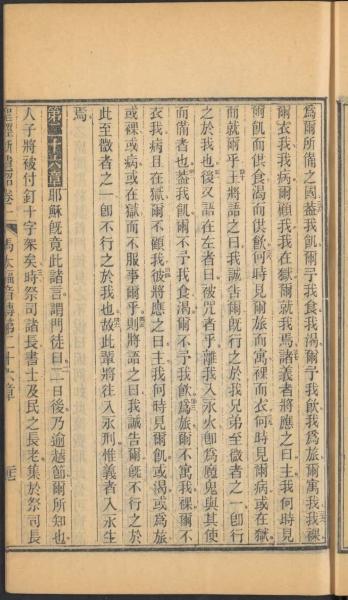 爲爾所備之國蓋我飢爾予我食我渴爾予我飲我爲旅爾寓我我裸
爾衣我我病爾顧我我在獄爾就我焉諸義者將應之曰主我何時見
爾飢而供食渴而供飲何時見爾旅而寓裸而衣何時見爾病或在獄
而就爾乎王將語之曰我誠告爾旣行之於我兄弟至微者之一卽行
之於我也後又語在左者曰被咒者乎離我入永火卽爲魔鬼與其使
而備者也蓋我飢爾不予我食渴爾不予我飲爲旅爾不寓我裸爾不
衣我病且在獄爾不顧我彼將應之曰主我何時見爾飢或渴或爲旅
或裸或病或在獄而不服事爾乎則將語之曰我誠告爾旣不行之於
此至微者之一卽不行之於我也故此輩將往入永刑惟義者入永生
焉
第二十六章耶穌旣竟此諸言謂門徒曰二日後乃逾越節爾所知也
人子將被付釘十字架矣時祭司諸長書士及民之長老集於祭司長
馬太福音傳第二十六章